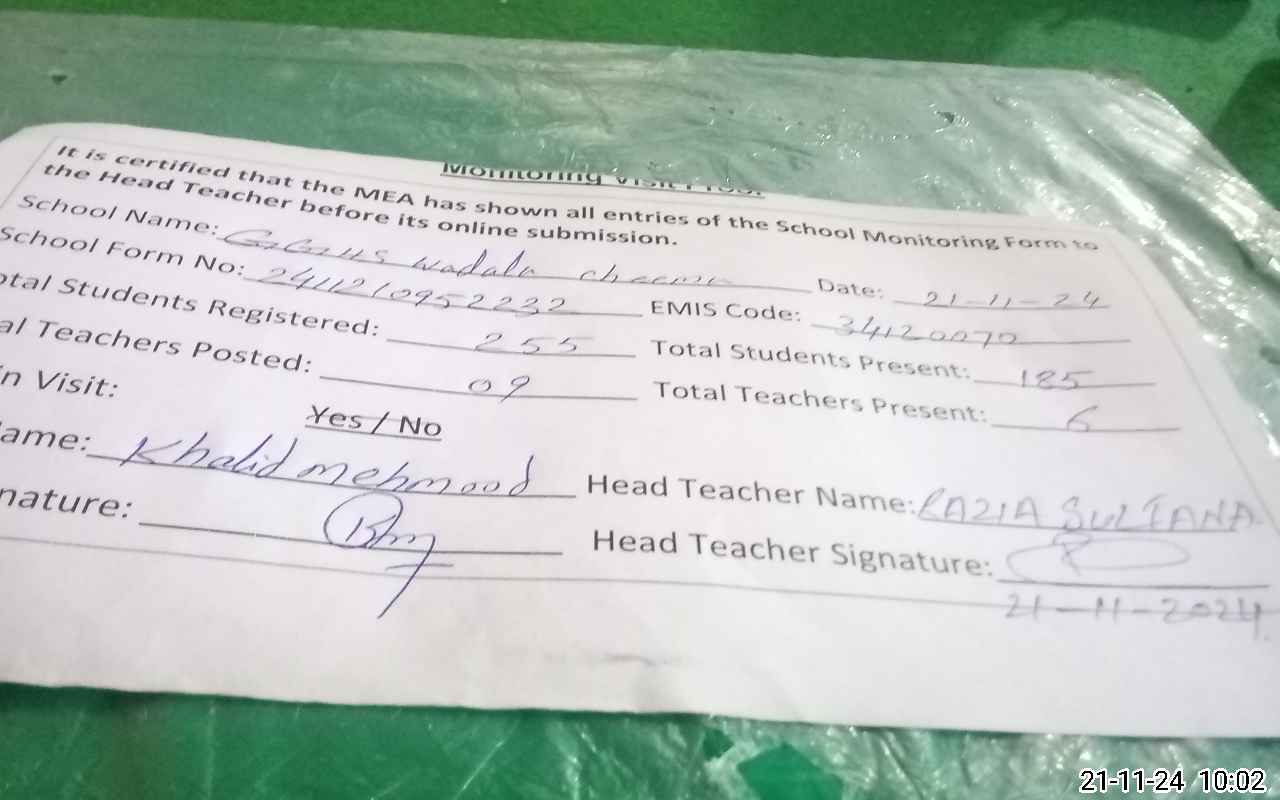 Monitoring Visit
It is certified that the MEA has shown all entries of the School Monitoring Form to
the Head Teacher before its online submission.
School Name: GGHS Wadala Cheema Date: 21-11-24
School Form No: 2411210952232 EMIS Code: 34120070
otal Students Registered: 255 Total Students Present: 185
al Teachers Posted: 09 Total Teachers Present: 6
n Visit: Yes / No
ame: Khalid mehmood Head Teacher Name: RAZIA SULTANA
nature: Head Teacher Signature:
21-11-2024
21-11-24 10:02